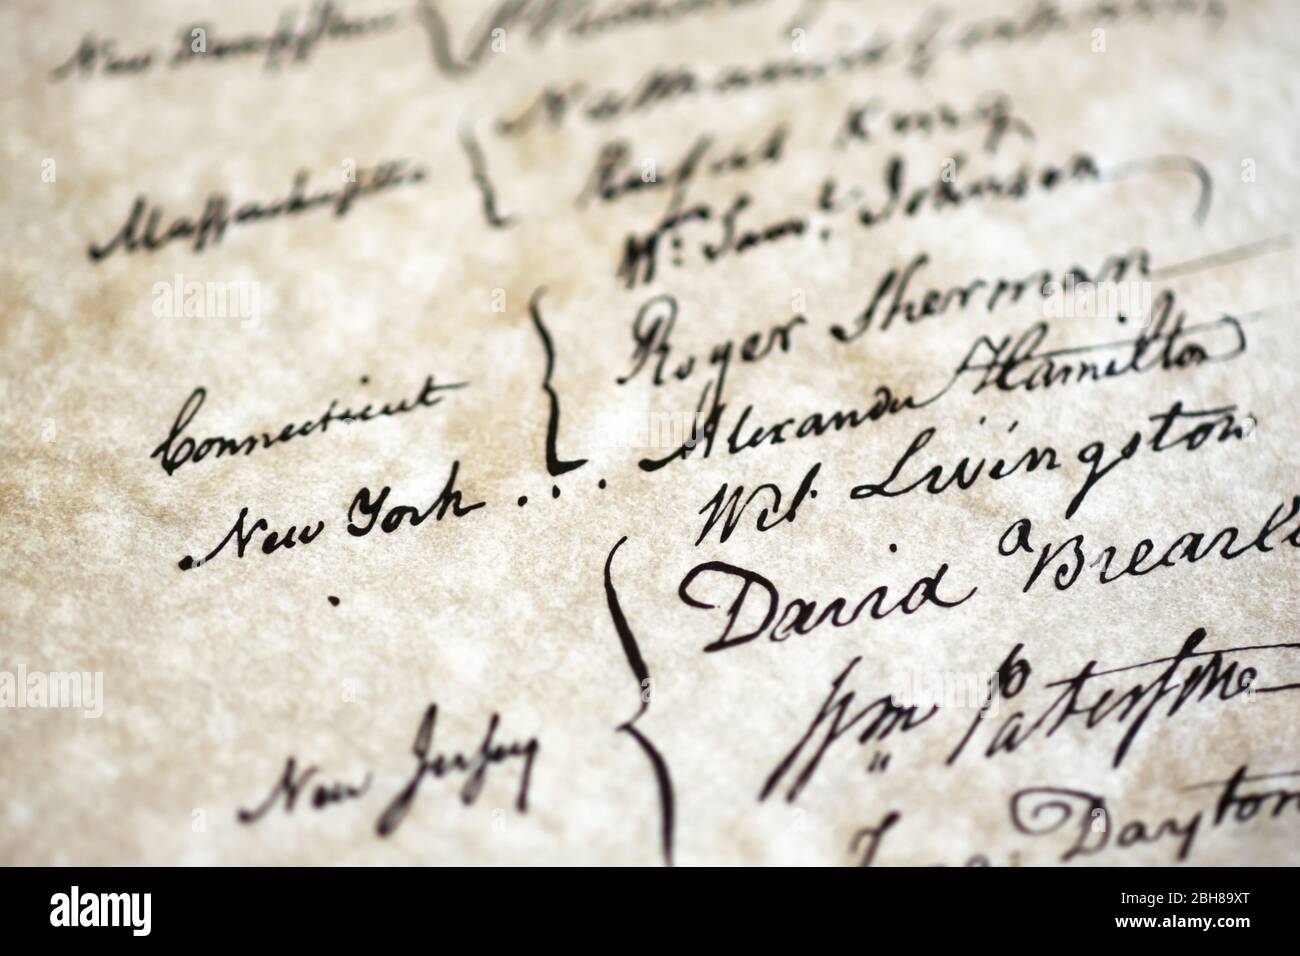 New
Massachusetts { Nathaniel Gorham
Rufus King
Connecticut { Wm. Saml. Johnson
Roger Sherman
New York ... Alexander Hamilton
New Jersey { Wil. Livingston
David Brearl
Wm Paterson
Dayton
alamy
Image ID: 2BH89XT
www.alamy.com